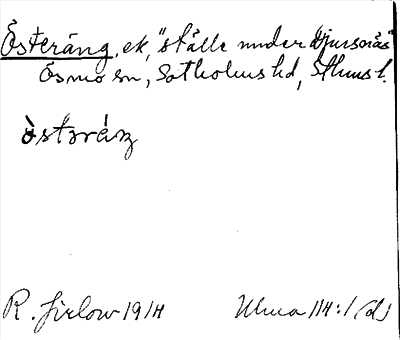 Österäng, ek, "ställe under Djursnäs"
Ösmo sn, Sotholms hd, Sthms l.
òstəráŋ
R. Jirlow 1914 Ulma 114:1 (d)